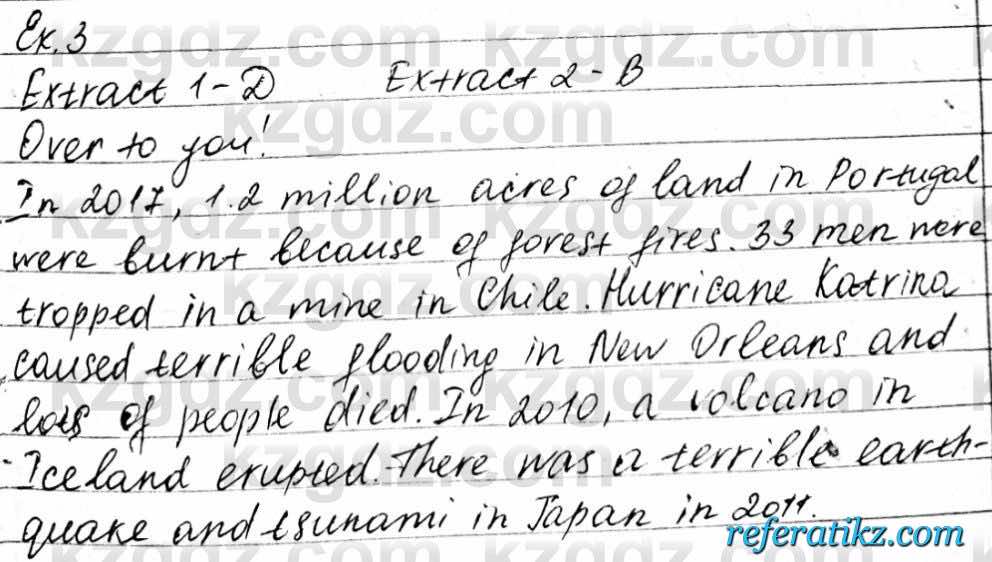 Ex. 3
Extract 1 - D Extract 2 - B
Over to you!
In 2017, 1.2 million acres of land in Portugal
were burnt because of forest fires. 33 men were
tropped in a mine in Chile. Hurricane Katrina
caused terrible flooding in New Orleans and
lots of people died. In 2010, a volcano in
Iceland erupted. There was a terrible earth-
quake and tsunami in Japan in 2011.
referatikz.com
kzgdz.com